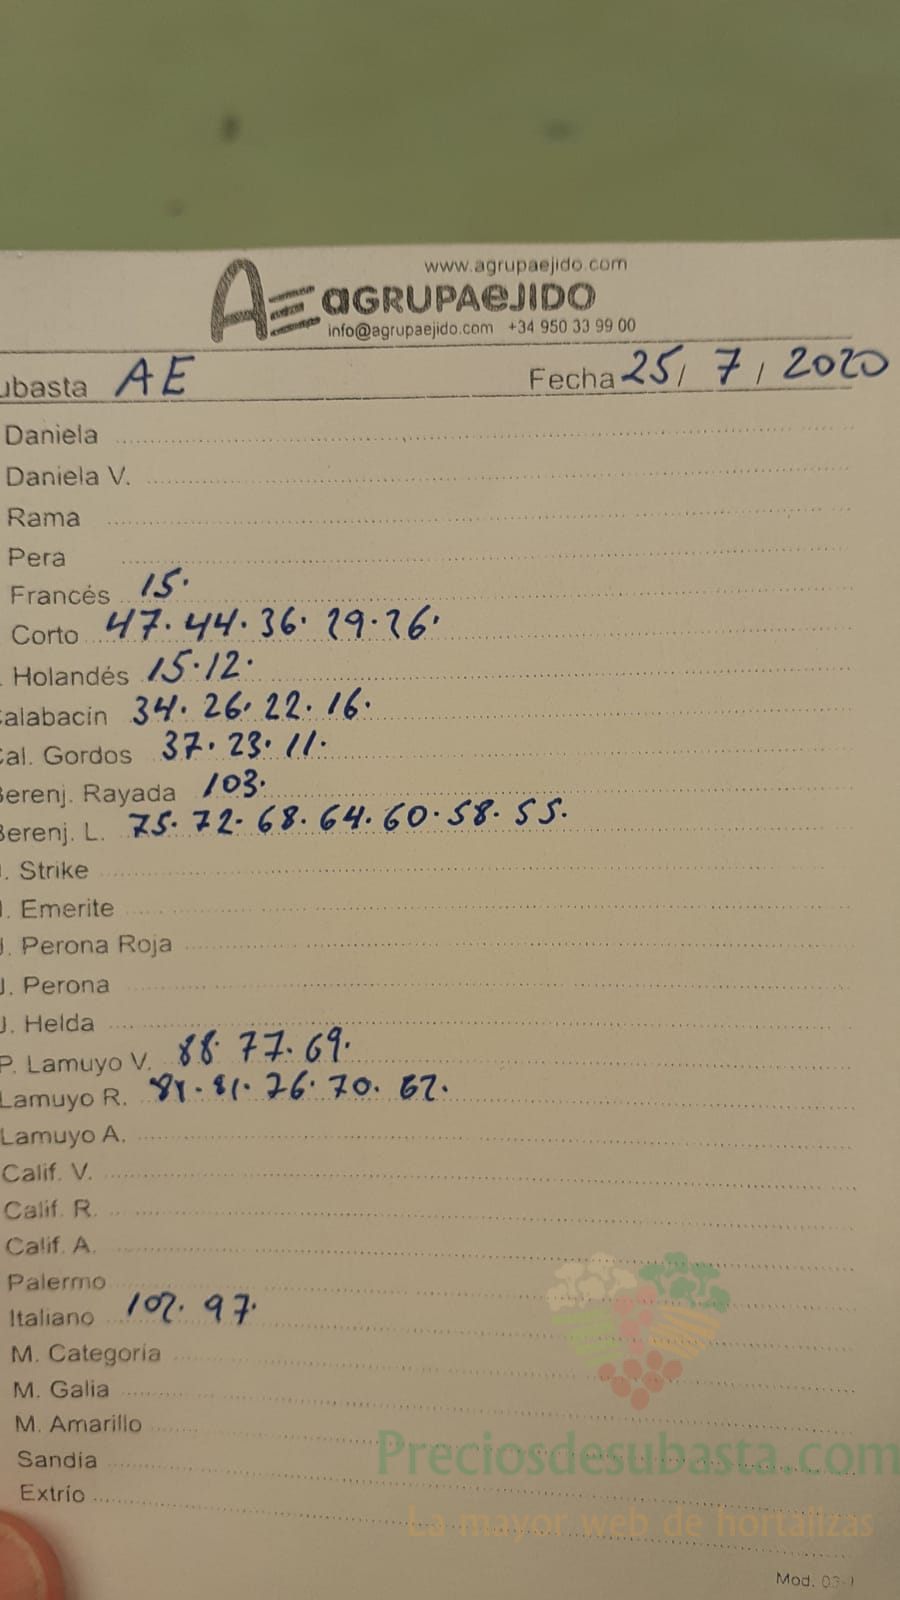 www.agrupaejido.com
AE aGRUPAeJIDO
info@agrupaejido.com +34 950 33 99 00
ubasta AE Fecha 25/ 7 / 2020
Daniela
Daniela V.
Rama
Pera
Francés 15.
Corto 47. 44. 36. 29. 26.
Holandés 15. 12.
Calabacín 34. 26. 22. 16.
Cal. Gordos 37. 23. 11.
Berenj. Rayada 103.
Berenj. L. 75. 72. 68. 64. 60. 58. 55.
. Strike
. Emerite
J. Perona Roja
J. Perona
J. Helda
P. Lamuyo V. 88. 77. 69.
Lamuyo R. 81. 76. 70. 62.
Lamuyo A.
Calif. V.
Calif. R.
Calif. A.
Palermo
Italiano 102. 97.
M. Categoría
M. Galia
M. Amarillo
Sandía
Extrío
Preciosdesubasta.com
La mayor web de hortalizas
Mod. 03-1